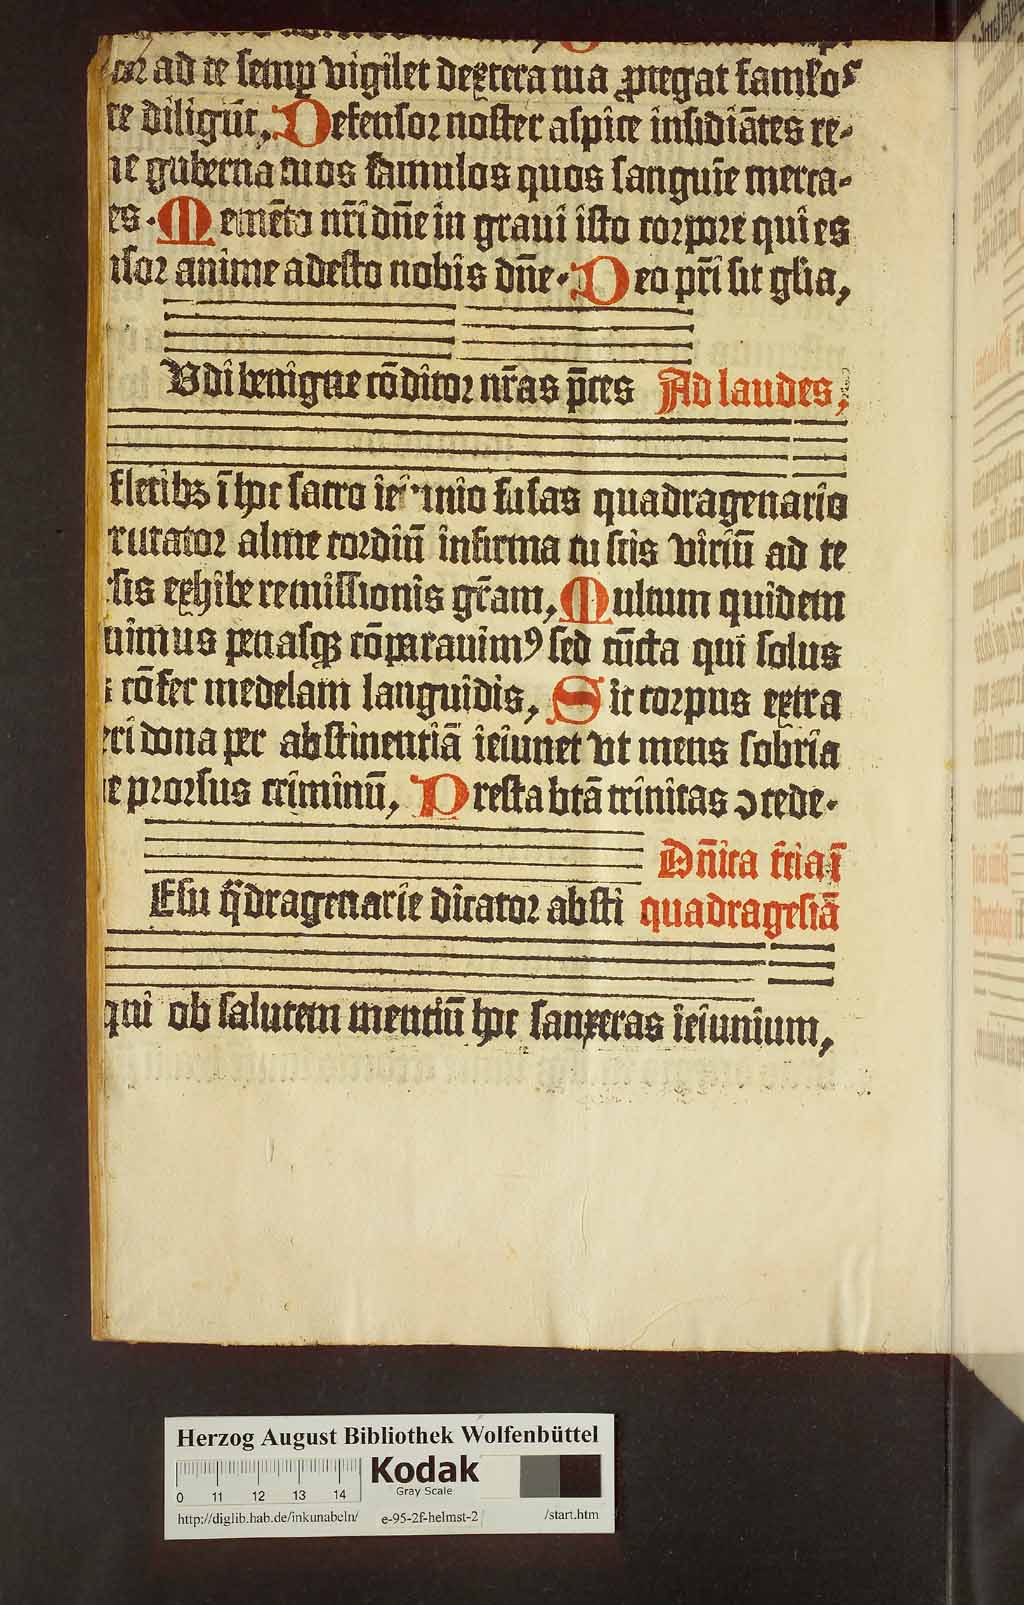 or ad te semꝑ vigilet dextera tua ꝓtegat famĺos
te diligūt, Defensor noster aspice insidiātes re-
ne guberna tuos famulos quos sanguīe merca-
es. Memēto nr̄i dn̄e in graui isto corpore qui es
nsor anime adesto nobis dn̄e. Deo pr̄i sit glīa,
Vdi benigne cōditor nr̄as p̄ces Ad laudes,
fletibꝫ ī hoc sacro ieiunio fusas quadragenario
rutator alme cordiū infirma tu scis viriū ad te
sis exhibe remissionis gr̄am, Multum quidem
uimus penasqꝫ cōparauimꝰ sed cūcta qui solus
s cōfer medelam languidis, Sit corpus extra
eri dona per abstinentiā ieiunet vt mens sobria
e prorsus criminū, Presta btā trinitas ↄcede-
Dn̄ica t̄cia ī
Esu q̈dragenarie dicator absti quadragesīā
qui ob salutem mentiū hoc sanxeras ieiunium,
Herzog August Bibliothek Wolfenbüttel
Kodak
Gray Scale
0 11 12 13 14
http://diglib.hab.de/inkunabeln/ e-95-2f-helmst-2 /start.htm